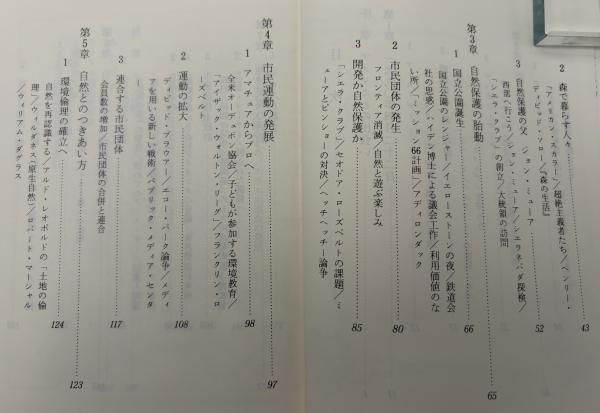 2 森で暮らす人々 43
「アメリカン・スカラー」/超絶主義者たち/ヘンリー・
デイビッド・ソロー/『森の生活』
3 自然保護の父 ジョン・ミューア 52
西部へ行こう/ジョン・ミューア/シエラネバダ探検/
「シエラ・クラブ」の創立/大統領の訪問
第3章 自然保護の胎動 65
1 国立公園誕生 66
国立公園のレンジャー/イエローストーンの夜/鉄道会
社の思惑/ハイデン博士による議会工作/利用価値のな
い所/「ミッション66計画」/アディロンダック
2 市民団体の発生 80
フロンティア消滅/自然と遊ぶ楽しみ
3 開発か自然保護か 85
「シエラ・クラブ」/セオドア・ローズベルトの課題/ミ
ューアとピンショーの対決/ヘッチヘッチー論争
第4章 市民運動の発展 97
1 アマチュアからプロへ 98
全米オーデュボン協会/子どもが参加する環境教育/
「アイザック・ウォルトン・リーグ」/フランクリン・ロ
ーズベルト
2 運動の拡大 108
デイビッド・ブラウアー/エコー・パーク論争/メディ
アを用いる新しい戦術/パブリック・メディア・センタ
ー
3 連合する市民団体 117
会員数の増加/市民団体の合併と連合
第5章 自然とのつきあい方 123
1 環境倫理の確立へ 124
自然を再認識する/アルド・レオポルドの「土地の倫
理」/ウィルダネス(原生自然)/ロバート・マーシャル
/ウィリアム・ダグラス